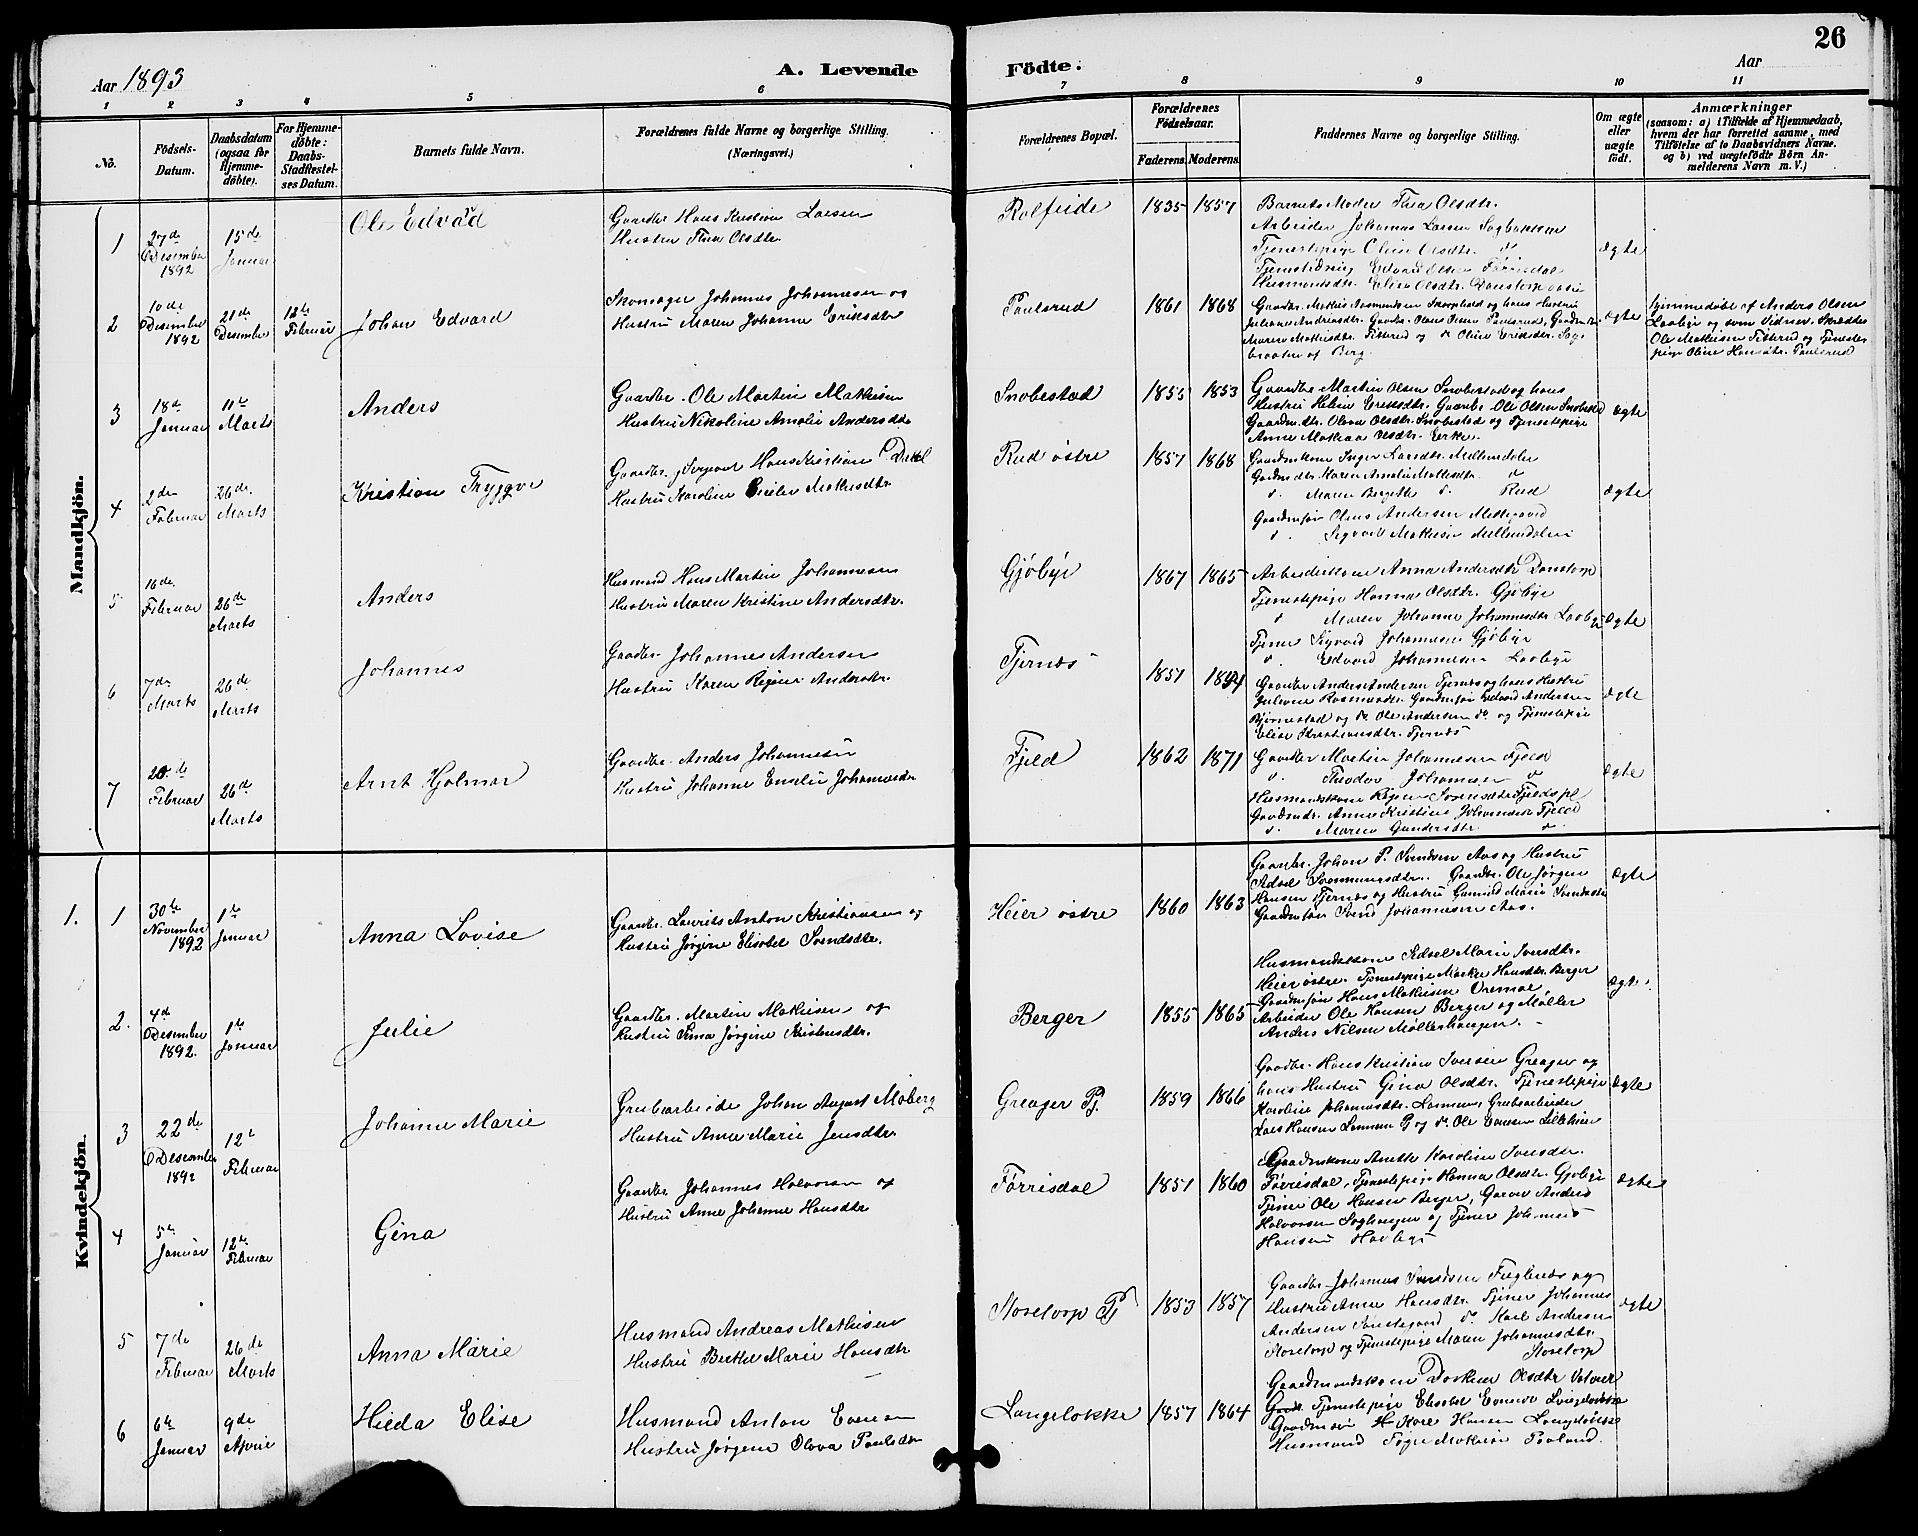 26
Aar 1893
A. Levende Födte.
Aar
1 2 3 4 5 6 7 8 9 10 11
No.
Födsels-Datum.
Daabsdatum (ogsaa för Hjemme-döbte).
For Hjemme-döbte: Daabs-Stadfæstel-ses Datum.
Barnets fulde Navn.
Forældrenes fulde Navne og borgerlige Stilling.
(Næringsvei.)
Forældrenes Bopæl.
Forældrenes Födselsaar.
Faderens. Moderens.
Faddernes Navne og borgerlige Stilling.
Om ægte eller uægte födt.
Anmærkninger
(saasom: a) i Tilfælde af Hjemmedaab,
hvem der har forrettet samme, med
Tilföielse af to Daabsvidners Navne,
og b) ved uægtefödte Börn An-
melderens Navn m. V.)
Mandkjön.
1
27de Desember 1892
15de Januar
Ole Edvard
Gaardbr. Hans Kristian Larsen
Hustru Thea Olsdtr.
1835 1857
Barnets Moder Thea Olsdtr.
Arbeider Johannes Larsen
Tjenestepige Oline Olsdtr. do
Tjenestedreng Edvard Olsen Førrisdal
Husmandsdtr. Elise Olsdtr.
Ægte
2
10de Desember 1892
21de Desember
12te Februar
Johan Edvard
Skomager Johannes Johannesen og
Hustru Maren Johanne Eriksdtr
Paulsrud
1861 1868
Gaardbr. Mathis og hans Hustru
Juliane Andreasdtr. Gaardbr. Olaus Olsen Paulsrud, Gaardm.dtr.
Maren Mathisdtr. og do Oline Eriksdtr.
af Berg.
Ægte
Hjemmedøbt af Anders Olsen
Laabye og som Vidner Skrædder
Ole Mathisen og Tjeneste-
pige Oline Hansdtr. Paulsrud
3
18de Januar
11te Marts
Anders
Gaardbr. Ole Martin Mathisen
Hustru Nikoline Amalie Andersdtr
Snobestad
1855 1853
Gaardbr Martin Olsen Snobestad og hans
Hustru Helene Eriksdtr. Gaardbr Ole Olsen Snobestad
Gaardm.dtr. Olava Olsdtr. Snobestad og Tjenestepige
Anne Mathea Olsdtr.
Ægte
4
2den Februar
26de Marts
Kristian Tryggve
Gaardbr. Sergeant Hans Kristian
Hustru Karoline Emilie Mathisdtr.
Rud østre
1857 1868
Gaardmkone Inger Larsdtr. Mellemdalen
Gaardmdtr. Karen Amalie Mathisdtr do
do. Maren Bergethe do. Rud
Gaardmsøn Olaus Andersen
do. Sigvart Mathisen Mellemdalen
Ægte
5
16de Februar
26de Marts
Anders
Husmand Hans Martin Johannesen
Hustru Maren Kristine Andersdtr.
Gjøbye
1867 1865
Arbeiderkone Anna Andersdtr
Tjenestepige Hanna Olsdtr. Gjøbye
do Maren Johanne Johannesdtr Laabye
Tjener Sigvard Johannesen Gjøbye
do. Edvard Johannesen Laabye
Ægte
6
7de Marts
26de Marts
Johannes
Gaardbr. Johannes Andersen
Hustru Karen Regine Andersdtr.
Tjernes
1857
Gaardbr Anders Andersen Tjernes og hans Hustru
Juliane Rasmusdtr. Gaardmsøn Edvard Andersen
Bjørnestad og do. Ole Andersen do. og Tjenestepige
Elise Kristiansdtr. Tjernes
Ægte
7
Februar
26de Marts
Arnt Hjalmar
Gaardbr. Anders Johannesen
Hustru Johanne Emelie Johannesdtr
Fjeld
1862 1871
Gaardbr Martin Johannesen Fjeld
do. Theodor Johannesen do
Husmandskone Regine Sørensdtr Fjeldspl.
Gaardmdtr. Anne Kristine Johannesdtr Fjeld
do. Maren Gundersdtr. do.
Ægte
Kvindekjön.
1.
1
30te November 1892
1te Januar
Anna Lovise
Gaardbr. Laurits Anton Kristiansen og
Hustru Jørgine Elisabet Svendsdtr.
Heier østre
1860 1863
Gaardbr. Johan P. Svendsen Aas og Hustru
Gaardbr. Ole Jørgen
Hansen Tjernes og Hustru Gunild Marie Svendsdtr
Gaardmsøn Svend Johannesen Aas.
Ægte
2.
4de Desember 1892.
1te Januar
Julie
Gaardbr. Martin Mathisen og
Hustru Anna Jørgine Kristensdtr.
Berger
1855 1865
Husmandskone Sidsel Marie Iversdtr.
Heier østre. Tjenestepige Marthe Hansdtr. Berger
Gaardmsøn Hans Mathisen
Arbeider Ole Hansen Berger og Møller
Anders Nilsen Møllerhaugen.
Ægte.
3
22de Desember 1892
12te Februar
Johanne Marie
Grubearbeider Johan August Moberg
Hustru Anne Marie Jensdtr.
Greager Pj.
1859 1866
Gaardbr. Hans Kristian Iversen Greager og
hans Hustru Gina Olsdtr. Tjenestepige
Karoline Johannesdtr. Grubearbeider
Lars Hansen og do. Ole Evensen
Ægte
4
5te Januar
12te Februar
Gina
Gaardbr. Johannes Halvorsen og
Hustru Anne Johanne Hansdtr
Førrisdal
1851 1860
Gaardmkone Anette Karoline Iversdtr.
Førrisdal, Tjenestepige Hanna Olsdtr. Gjøbye
Tjener Ole Hansen Berger, Garver Anders
Halvorsen Saghaugen og Tjener Johannes
Hansen
Ægte
5
7de Februar
26de Marts
Anna Marie
Husmand Andreas Mathisen
Hustru Berthe Marie Hansdtr
Storetorp Pj
1853 1857
Gaardbr Johannes Fuglenes og
Hustru Anne Hansdtr. Tjener Johannes
Andersen do Karl Andersen
Storetorp og Tjenestepige Maren Johannesdtr.
Storetorp
Ægte
6
6te Januar
9de April
Hilda Elise
Husmand Anton Evensen
Hustru Jørgine Olava Paulsdtr
Langeløkke
1857 1864
Gaardmandskone Dorthea Olsdtr
Tjenestepige Elisabet Langeløkke
Gaardmsøn Kare Hansen Langeløkke
Husmand Mathisen